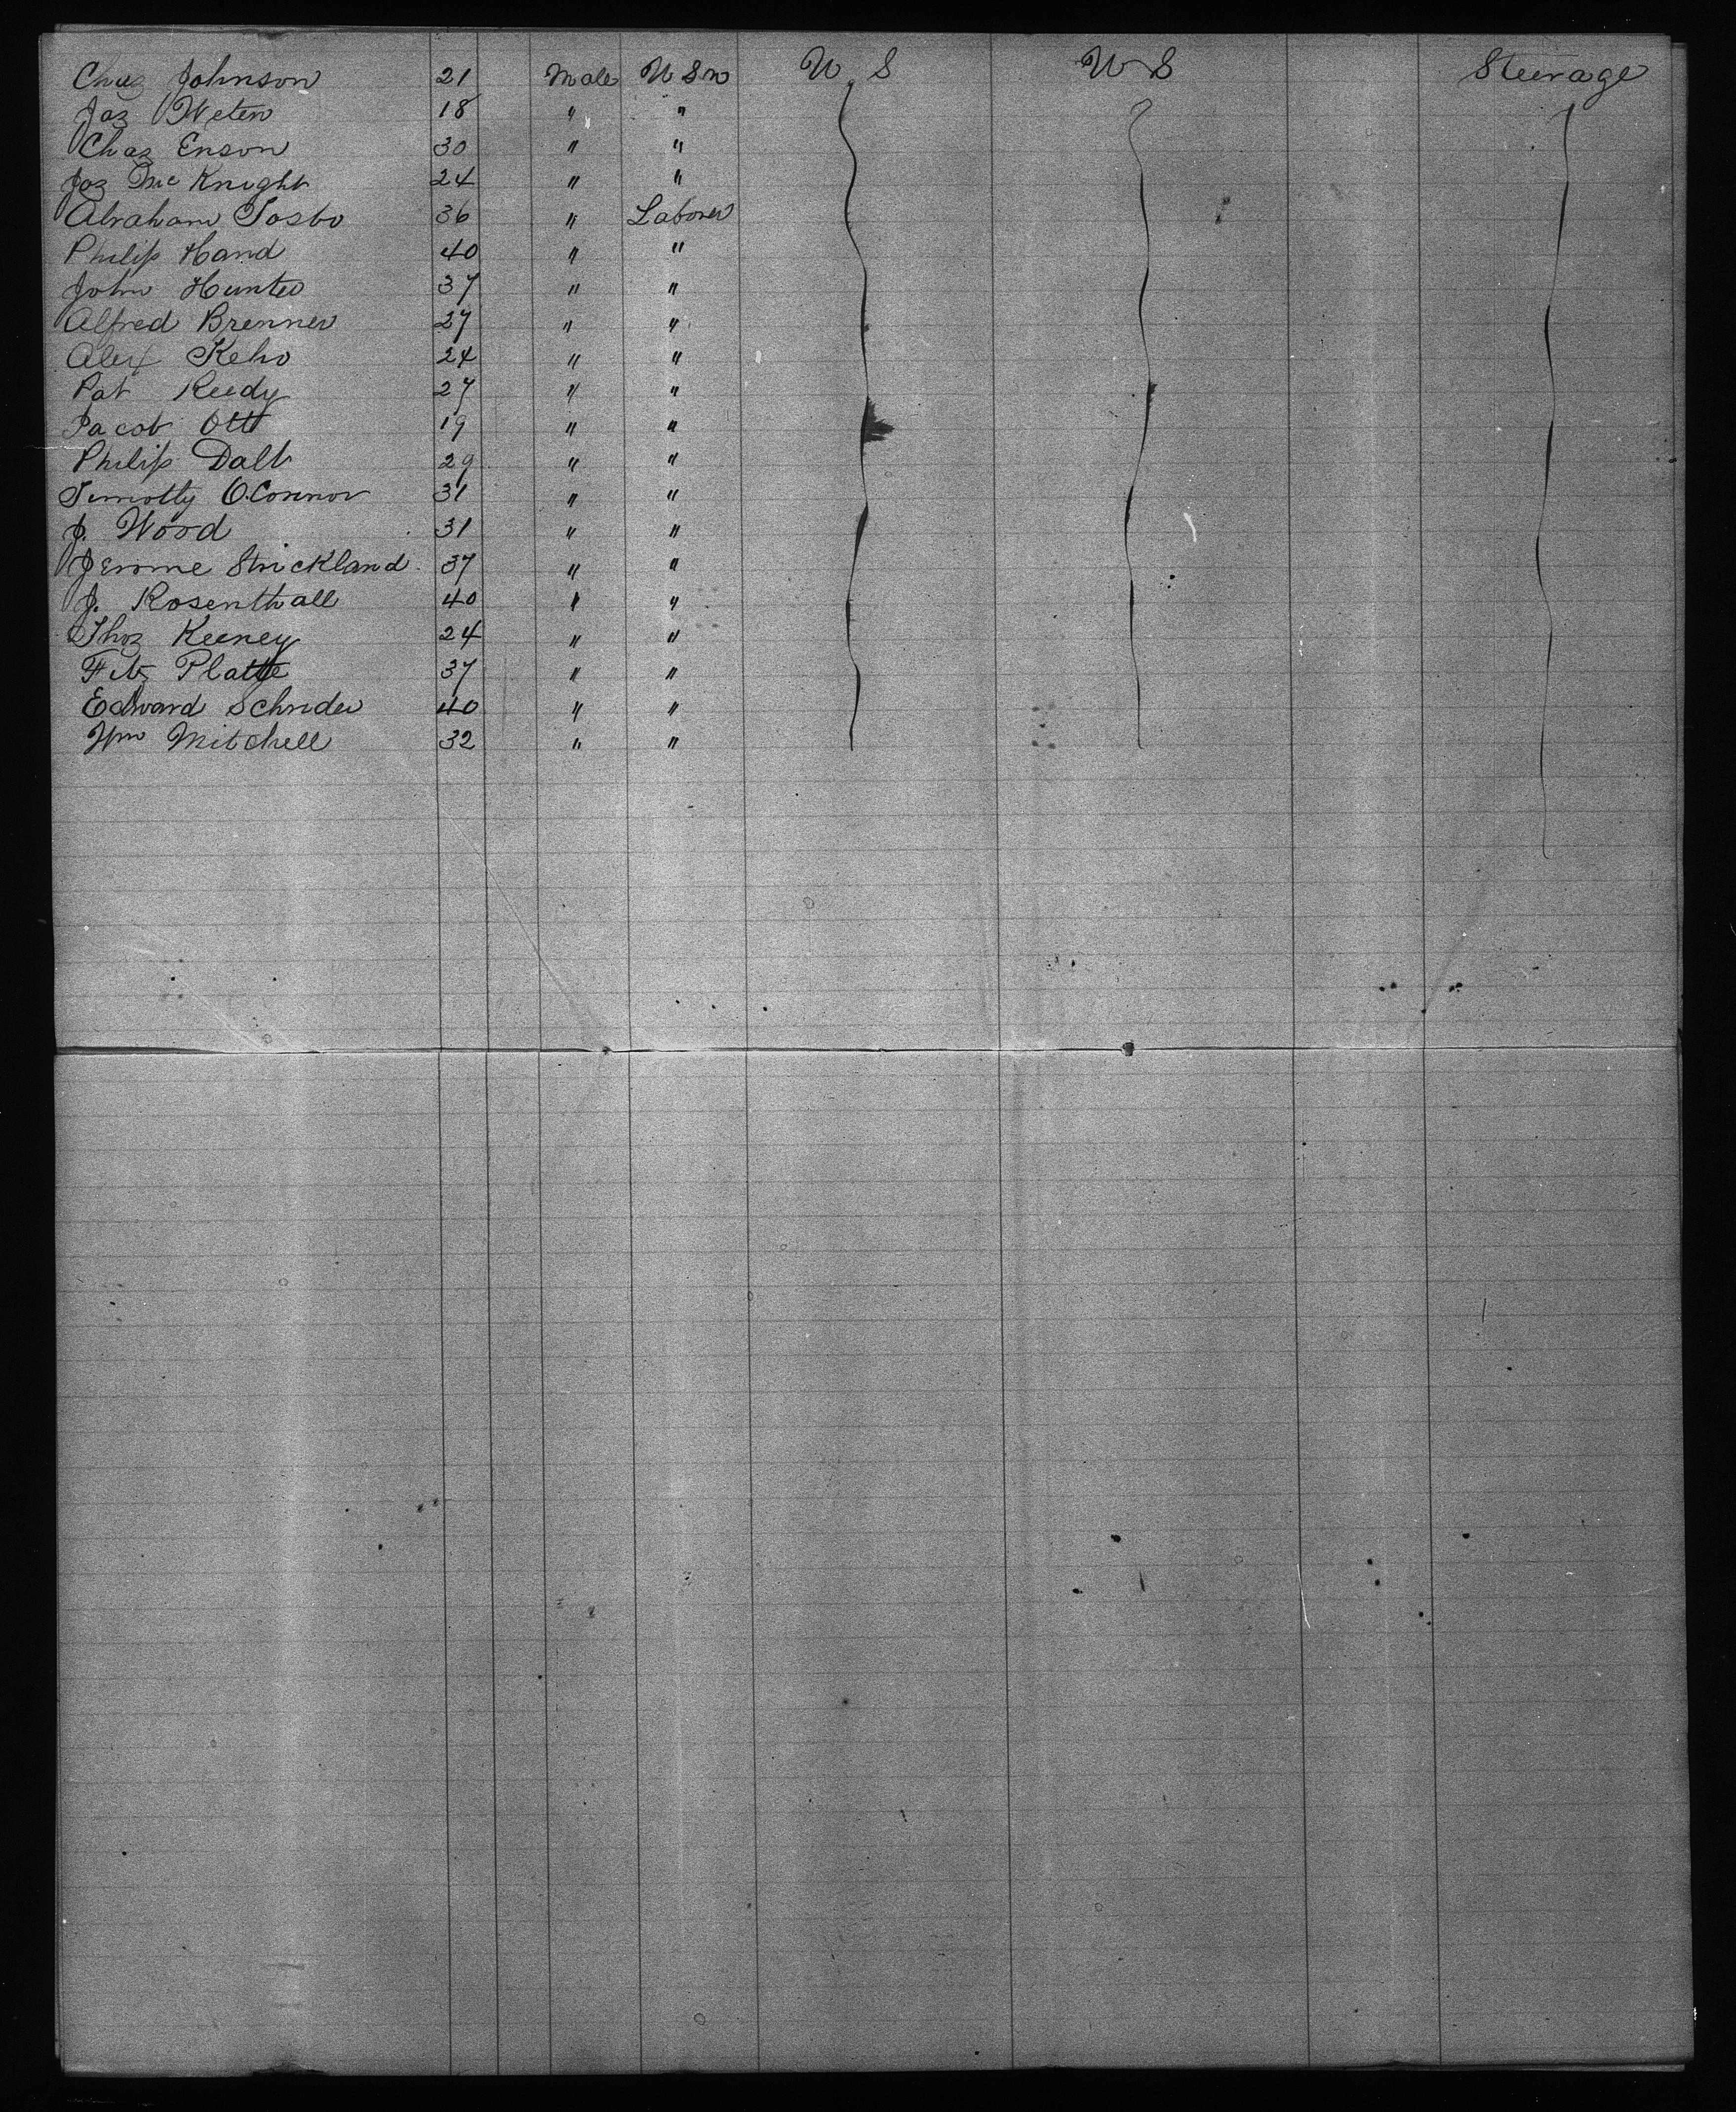 Chas Johnson 21 Male U S N U S U S Steerage
Jas Weten 18 " "
Chas Enson 30 " "
Jas McKnight 24 " "
Abraham Tosbo 36 " Laborer
Philip Hand 40 " "
John Hunter 37 " "
Alfred Brenner 27 " "
Alex Keho 24 " "
Pat Reedy 27 " "
Jacob Ott 19 " "
Philip Dalt 29 " "
Timothy O.Connor 31 " "
J. Wood 31 " "
Jerome Strickland 37 " "
J. Rosenthall 40 " "
Thos Keeney 24 " "
Fitz Platte 37 " "
Edward Schrider 40 " "
Wm Mitchell 32 " "